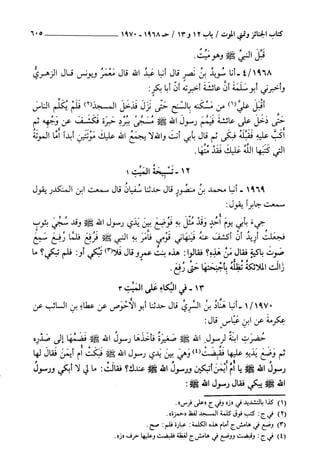 كتاب الجنائز وتمني الموت / باب ١٢ و ١٣ / حـ ١٩٦٨ - ١٩٧٠ ــــــــ ٦٠٥
قَبَّلَ النبيَّ ﷺ وهو مَيِّتٌ.
٤/١٩٦٨ - أنا سُوَيدُ بنُ نَصرٍ قال أنبا عبدُ الله قال مَعْمَرٌ ويونس قال الزهريُّ
وأخبرني أبو سَلَمَةَ أنَّ عائشةَ أخبرته أنَّ أبا بكرٍ:
أقْبَلَ عليَّ(١) من مَسْكَنِهِ بِالسُّنْحِ حتى نَزَلَ فَدَخَلَ المسجدَ(٢) فَلَمْ يُكَلِّمِ الناسَ
حتَّى دَخَلَ على عائشةَ فَيَمَّمَ رسولَ الله ﷺ مُسَجًّى بِبُرْدِ حِبَرَةٍ فَكَشَفَ عن وَجْهِهِ ثم
أكَبَّ عليه فَقَبَّلَهُ فبكى ثم قال بأبي أنتَ والله لا يجمعُ الله عليكَ مَوْتَتَينِ أبداً أمَّا الموتَةُ
التي كَتَبَها اللَّهُ عَلَيكَ فَقَدْ مُتَّهَا.
١٢ - تَسْجِيَةُ المَيِّتِ ١
١٩٦٩ - أنبا محمد بنُ منصُورٍ قال حدثنا سُفيانُ قال سمعت ابن المنكدرِ يقول
سمعت جابراً يقول:
جيءَ بأبي يومَ أحُدٍ وَقَدْ مُثِّلَ بهِ فَوُضِعَ بينَ يَدَيْ رسول الله ﷺ وقد سُجِّيَ بثوبٍ
فجعلْتُ أُريدُ أنْ أكشفَ عنه فَيَنهَانِي قَوْمِي فأمَرَ بِهِ النبي ﷺ فَرُفِعَ فلمَّا رُفِعَ سَمِعَ
صَوتَ باكيةٍ فقال مَنْ هَذِهِ؟ فقالوا: هذه بنتُ عمرو قال فلا(٣) تَبكي أو: فلم تبكي؟ ما
زَالَتِ الملائكةُ تُظِلُّهُ بِأجنِحَتِهَا حَتَّى رُفِعَ.
١٣ - في البُكاءِ عَلَى المَيِّتِ ٣
١/١٩٧٠ - أنبا هَنَّادُ بنُ السَّرِيِّ قال حدثنا أبو الأحْوَصِ عن عطاءِ بنِ السائبِ عن
عِكرمَةَ عن ابنِ عبَّاسٍ قال:
حُضِرَتِ ابنةٌ لرسولِ الله ﷺ صَغيرَةٌ فأخَذَهَا رسولُ الله ﷺ فَضَمَّهَا إلى صَدْرِهِ
ثم وَضَعَ يَدَيْهِ عليها فقُبِضَتْ(٤) وَهيَ بينَ يَدَي رسول الله ﷺ فبكت أُم أيمَنَ فقال لها
رسولُ الله ﷺ يا أُمَّ أيْمَنَ أتبكينَ ورسولُ الله ﷺ عندك؟ فقالَتْ: ما لي لا أبكي ورسولُ
الله ﷺ يبكي فقال رسولُ الله ﷺ:
(١) كذا بالتشديد في «ز» وفي ج «على فرس».
(٢) في ج: كتب فوق كلمة المسجد لفظ «حمزة».
(٣) وضع في هامش ج أمام هذه الكلمة: عبارة فلم: صح.
(٤) في ج: وقبضت ووضع في هامش ج لفظة فقبضت وعليها حرف «ز».